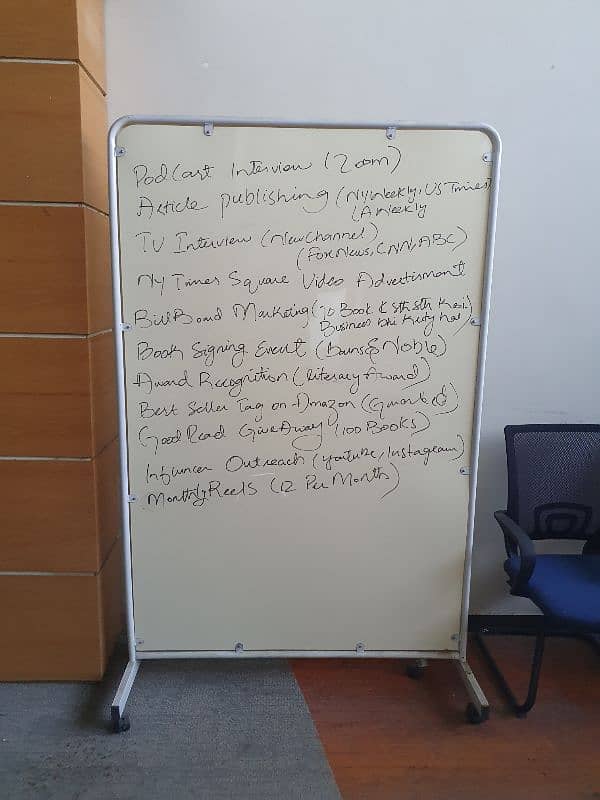 PodCast Interview (Zoom)
Article publishing (NyWeekly, US Times)
LA Weekly
TV Interview (News Channel)
(Fox News, CNN, ABC)
Ny Times Square Video Advertisment
BillBoard Marketing (jo Book k sth sth
Business bhi
Book Signing Event (Barns & Noble)
Award Recognition (literary Award)
Best Seller Tag on Amazon
GoodRead GiveAway (100 BOOKS)
Outreach (youtube, Instagram)
Monthly Reels (12 Per Month)